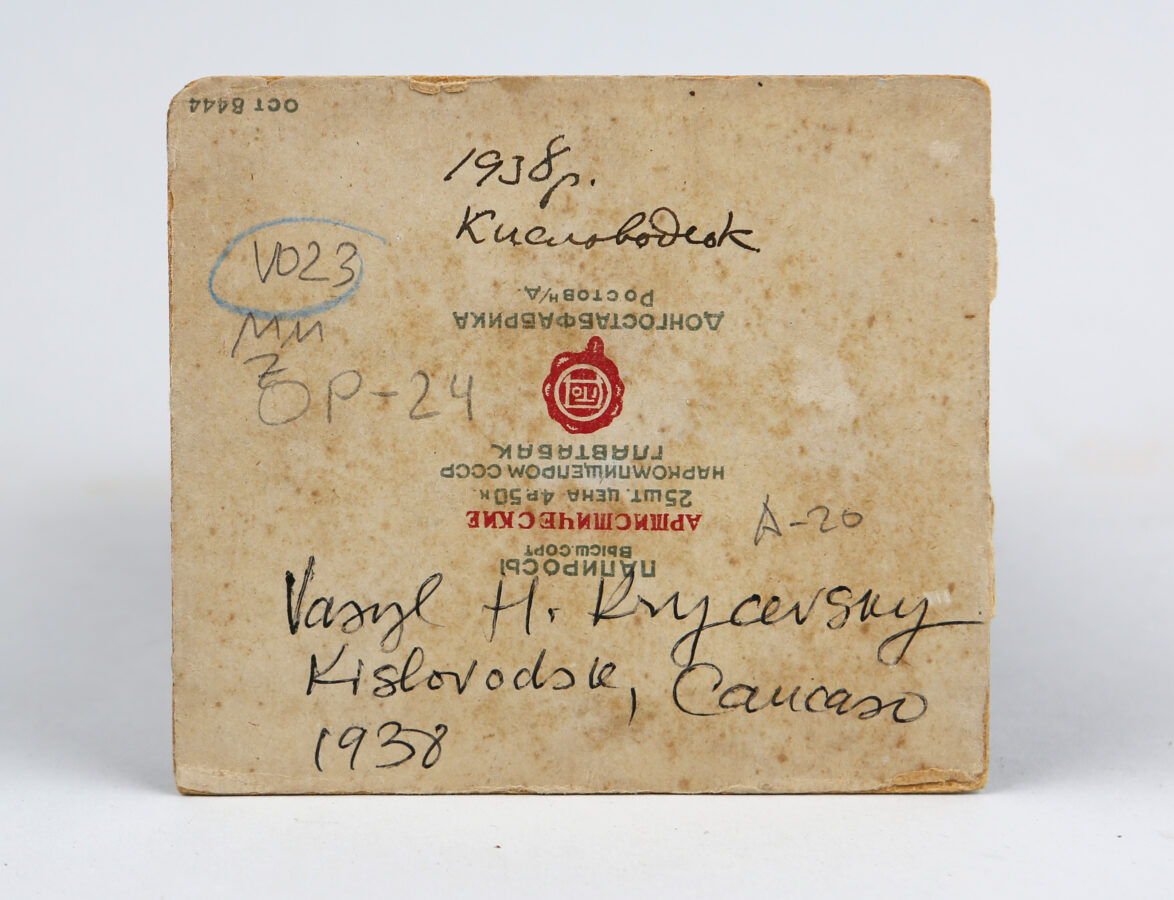 ОСТ 8444
1938р.
Кисловодск
V023
МИ
Z
OP-24
РОСТОВ Н/Д.
ДОНГОСТАБФАБРИКА
ГЛАВТАБАК
НАРКОМПИЩЕПРОМ СССР
25 ШТ. ЦЕНА 4 Р. 50 К.
АРТИСТИЧЕСКИЕ
ВЫСШ. СОРТ
ПАПИРОСЫ
A-20
Vasyl H. Krycevsky
Kislovodsk, Caucaso
1938